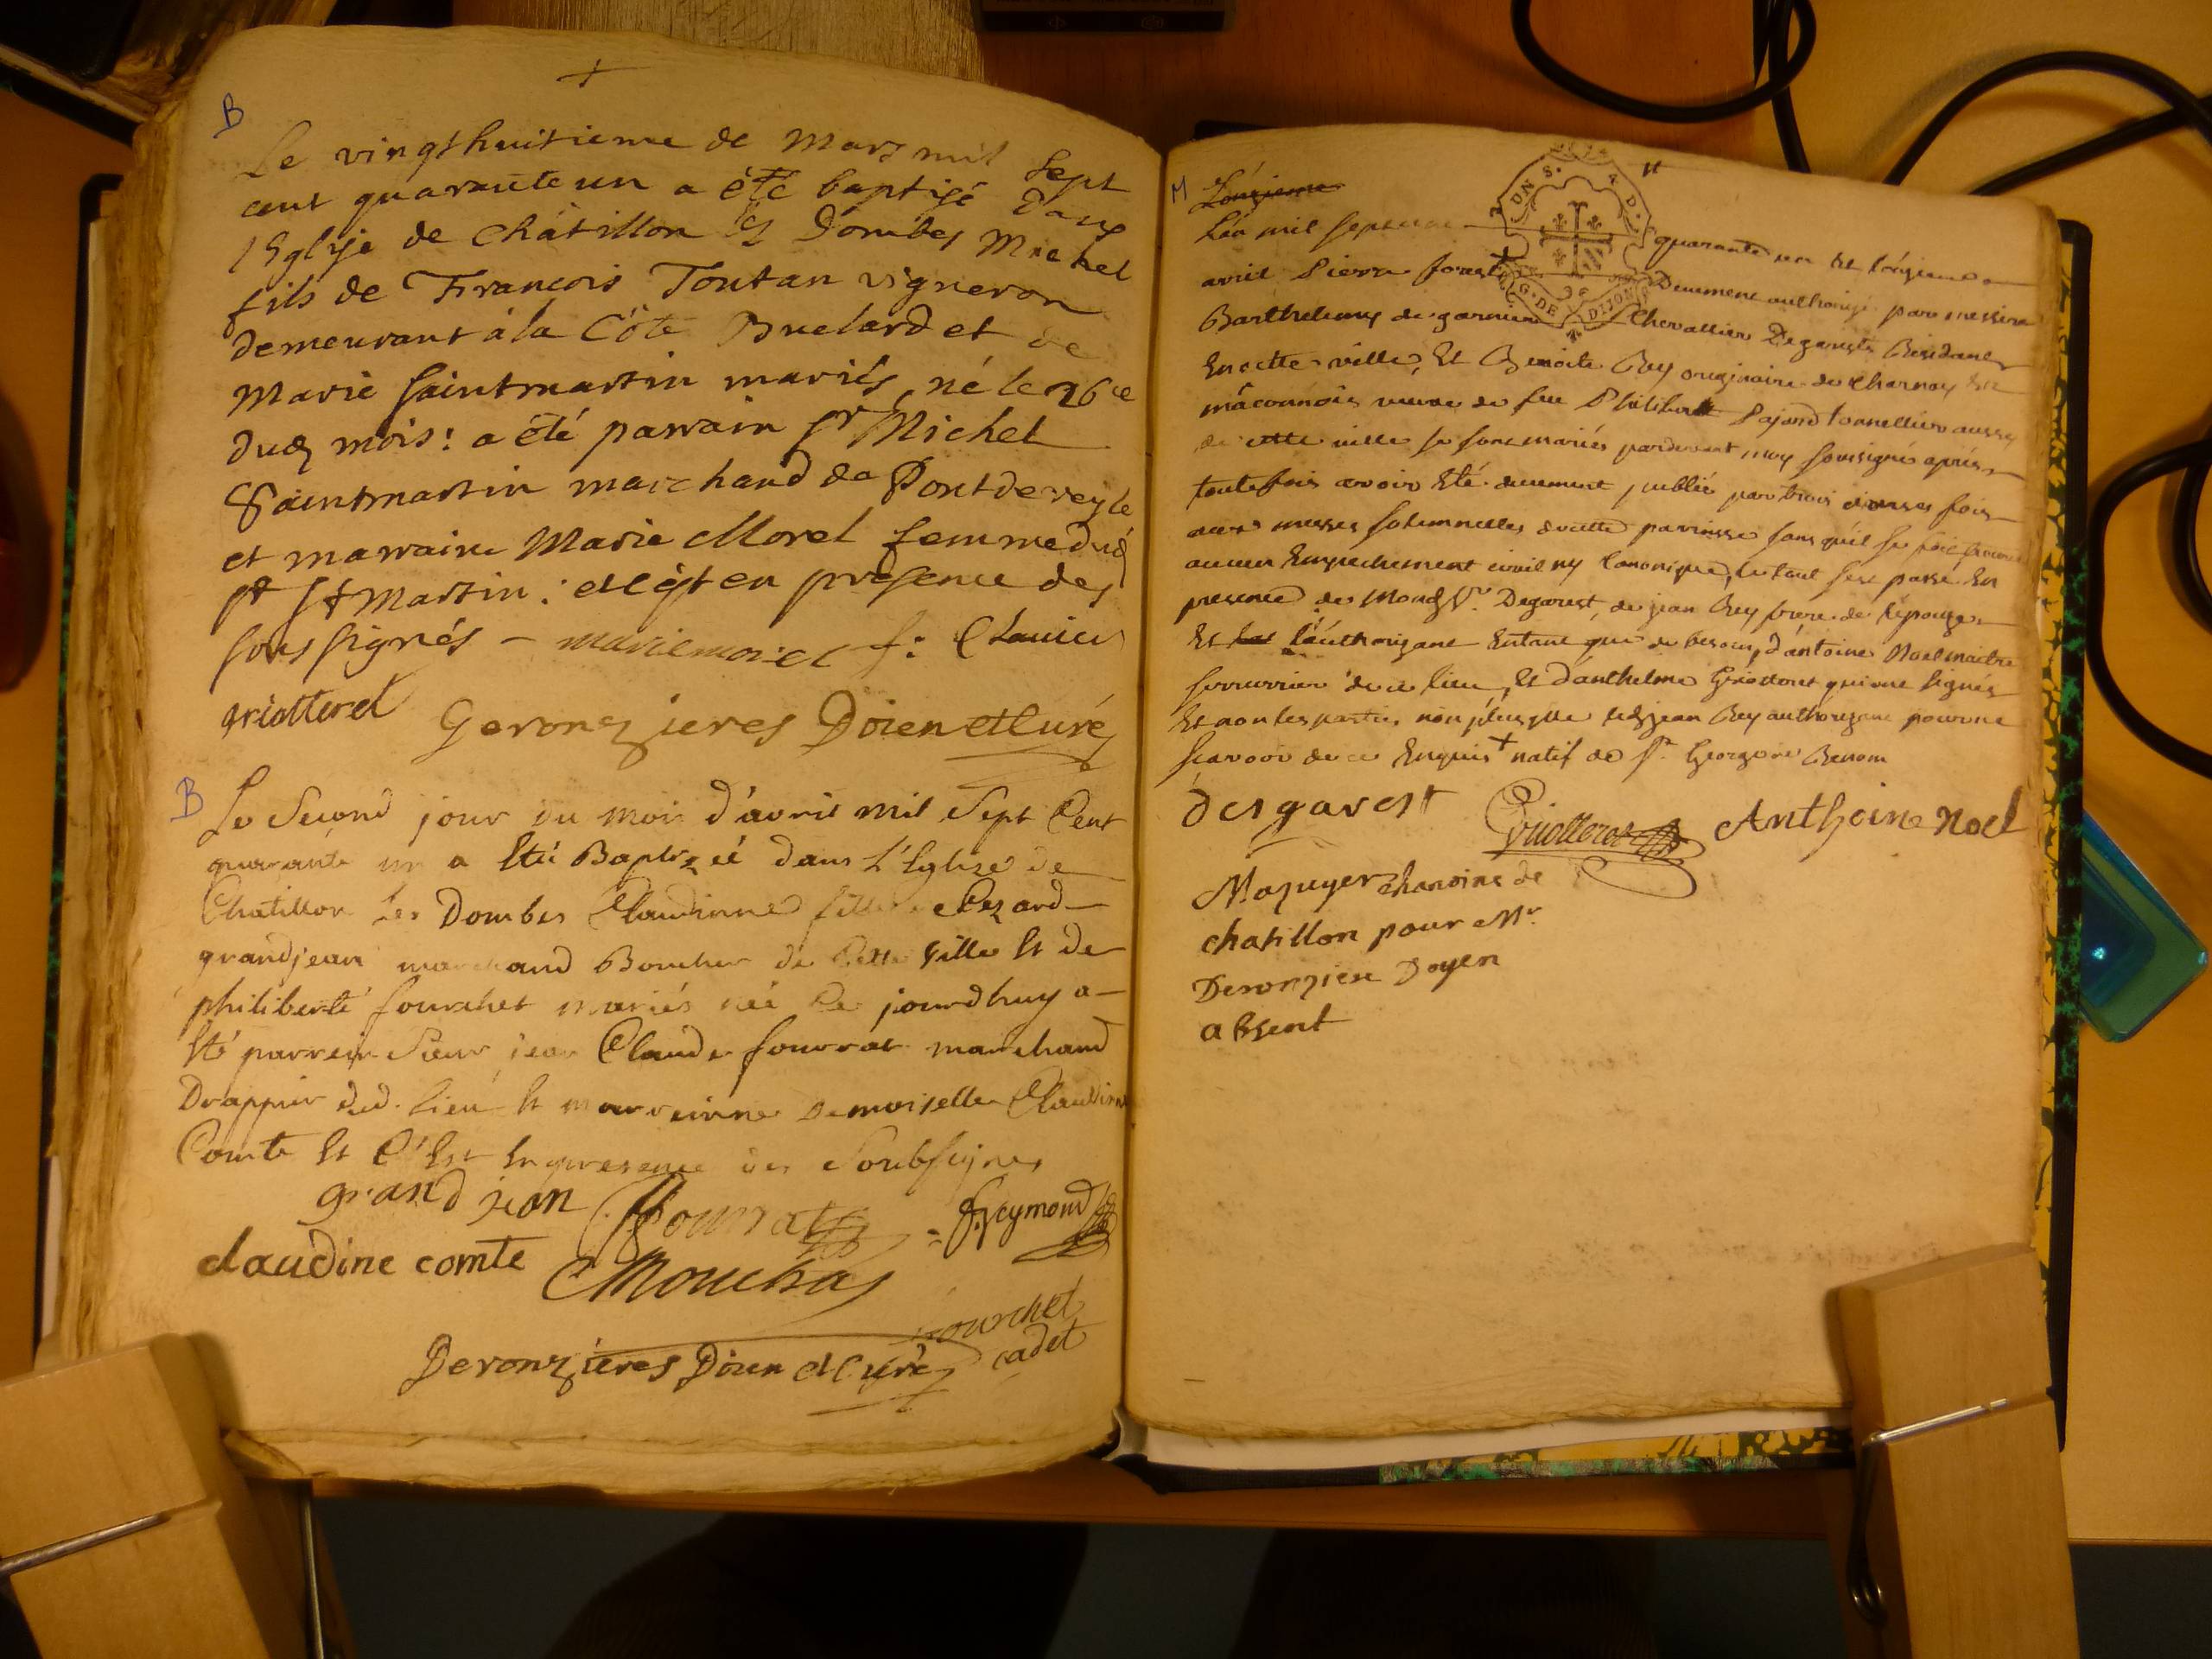 B
Le vingthuitieme de Mars mil Sept
cent quarante un a été baptisé dans
l'Eglise de Châtillon lès Dombes Michel
fils de François Toutan vigneron
demeurant à la Côte Buelard et de
Marie Saintmartin mariés, né le 26e
dud mois: a été parrain Sr Michel
Saintmartin marchand de Pontdeveyle
et marraine Marie Morel femme dud
Sr St Martin: et c'est en présence des
soussignés - marie morel f: Chanier
griotteret
Geronzieres Doien et Curé
B
Le Second jour du mois d'avril mil Sept Cent
quarante un a Eté Baptizéé dans L'Eglize de
Chatillon Les Dombes Claudinne fille Cezard
grandjean marchand Boucher de Cette Ville Et de
philiberte fourchet mariés née Ce jourdhuy a
Eté parrein Sieur jean Claude fourrat marchand
Drappier dud. lieu Et marreinne Demoiselle Claudine
Comte Et C'Est En presence des Soubsignes
grand jean fourrat f. reymond
claudine comte Mouchas
fourchet
cadet
Deronzieres Doien et Curé
M
Lonzieme
Lan mil septcent quarante un Et lonzieme
avril Pierre forest Deuement authorizé par messire
Barthelemy de garnier Chevallier Degarest Residant
En cette ville, Et Benoite Rey originaire de Charnay En
mâconnois veuve de feu Philibert Pajand tonnellier aussy
de cette ville se sont mariés pardevant moy soussigné après
toutefois avoir Eté deuement publié par trois diverses fois
aux messes solemnelles de cette parroisse sans qu'il se soit trouvé
aucun Empechement civil ny Canonique, le tout s'est passé En
presence de Mond Sr. Degarest, de jean Rey frere de l'epouze
Et l'authorizant Entant que de besoin, d'antoine Noel maitre
serrurrier de ce lieu, Et d'anthelme Griotteret qui ont signés
Et non les parties non plus que led jean Rey authorizant pour ne
scavoir de ce Enquis + natif de St. George de Renom
desgarest Griotteret Anthoine Noel
Mazuyer chanoine de
chatillon pour Mr.
Deronziere Doyen
absent